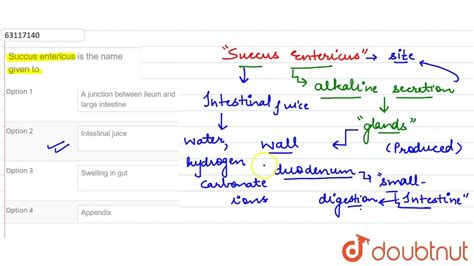 63117140
Succus entericus is the name
given to
Option 1
A junction between ileum and
large intestine
Option 2
Intestinal juice
Option 3
Swelling in gut
Option 4
Appendix
"Succus entericus" → site
alkaline secretion
Intestinal juice
"glands"
(Produced)
water,
hydrogen
carbonate
ions
wall
duodenum → "small-
digestion ← Intestine"
doubtnut